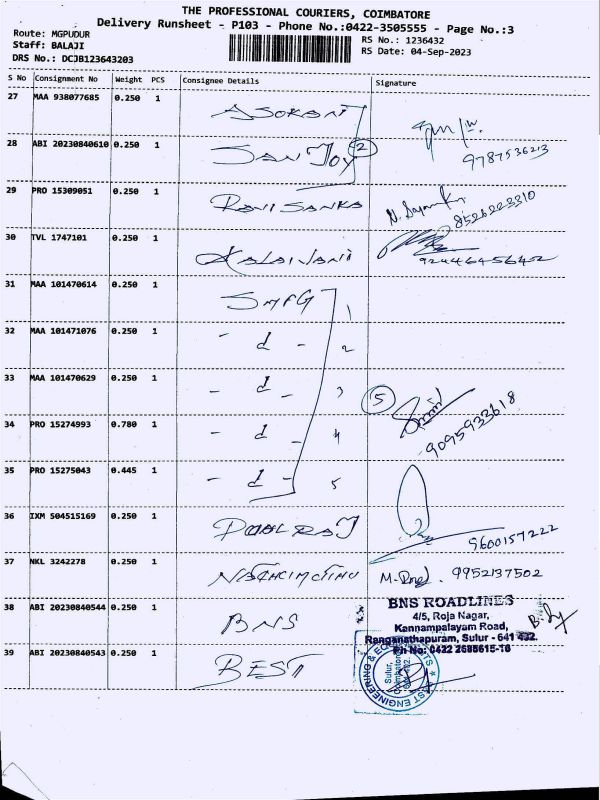 THE PROFESSIONAL COURIERS, COIMBATORE
Delivery Runsheet - P103 - Phone No.:0422-3505555 - Page No.:3
Route: MGPUDUR
RS No.: 1236432
Staff: BALAJI
RS Date: 04-Sep-2023
DRS No.: DCJB123643203
S No Consignment No Weight PCS Consignee Details Signature
27 MAA 938077685 0.250 1 ASOKAN
28 ABI 20230840610 0.250 1 SANJOY 2
29 PRO 15309051 0.250 1 RAVI SANKA 8526223310
30 TVL 1747101 0.250 1 KALAIVANI
31 MAA 101470614 0.250 1 SMFG 1
32 MAA 101471076 0.250 1 - d - 2
33 MAA 101470629 0.250 1 - d - 3 5
34 PRO 15274993 0.780 1 - d - 4 9095933618
35 PRO 15275043 0.445 1 - d - 5
36 IXM 504515169 0.250 1 9600157222
37 NKL 3242278 0.250 1 9952137502
38 ABI 20230840544 0.250 1 BNS
BNS ROADLINES
4/5, Roja Nagar,
Kannampalayam Road,
Ranganathapuram, Sulur - 641 402.
Ph No: 0422 2685615-16
39 ABI 20230840543 0.250 1 BEST
Sulur,
Coimbatore